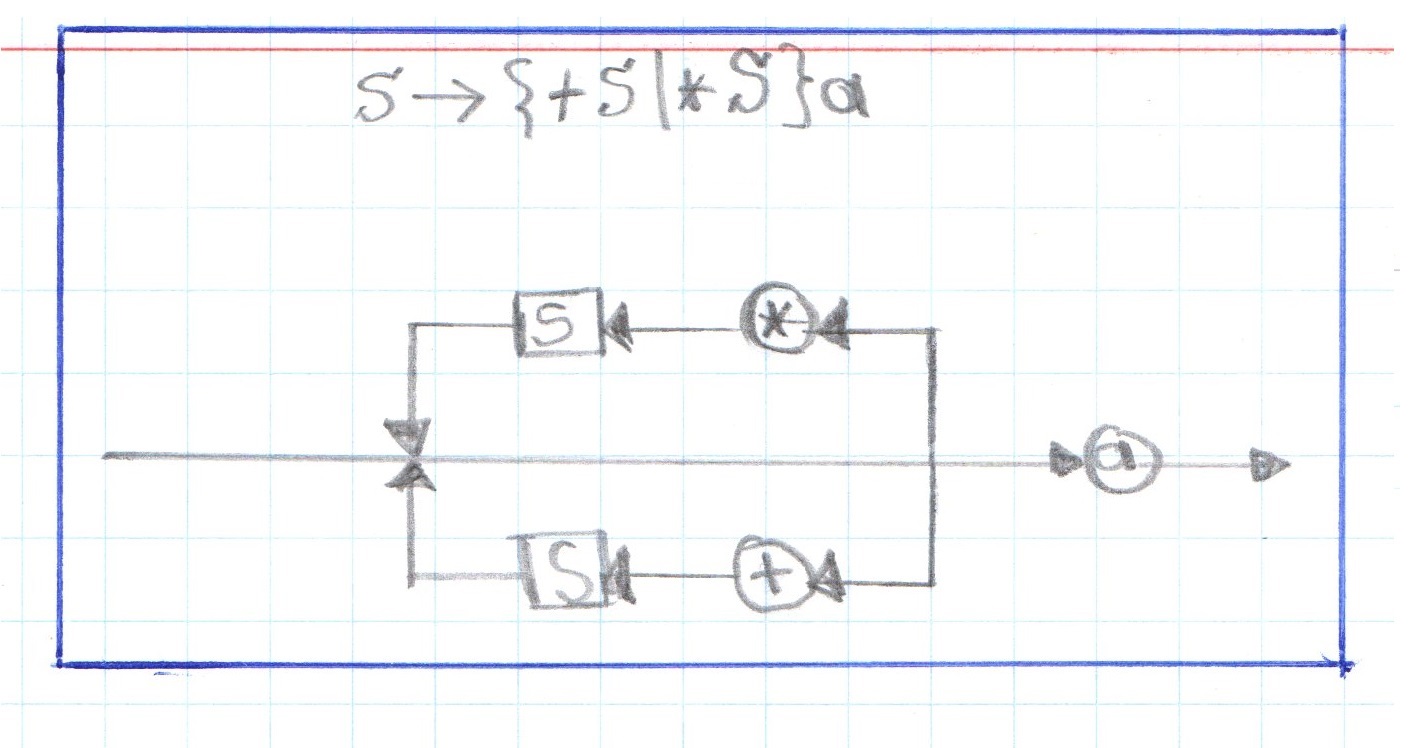 S→{+S|*S}a
S *
a
S +